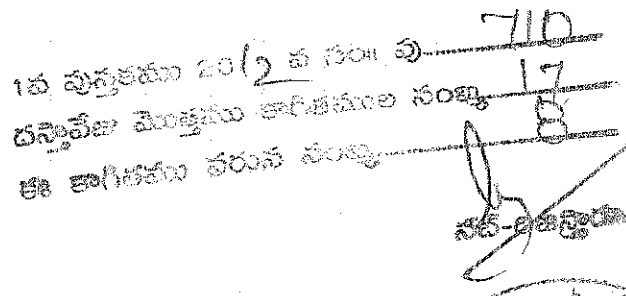 1వ పుస్తకము 2012 వ సం॥ పు 710
దస్తావేజు మొత్తము కాగితముల సంఖ్య 17
ఈ కాగితము వరుస సంఖ్య
సబ్-రిజిస్ట్రారు